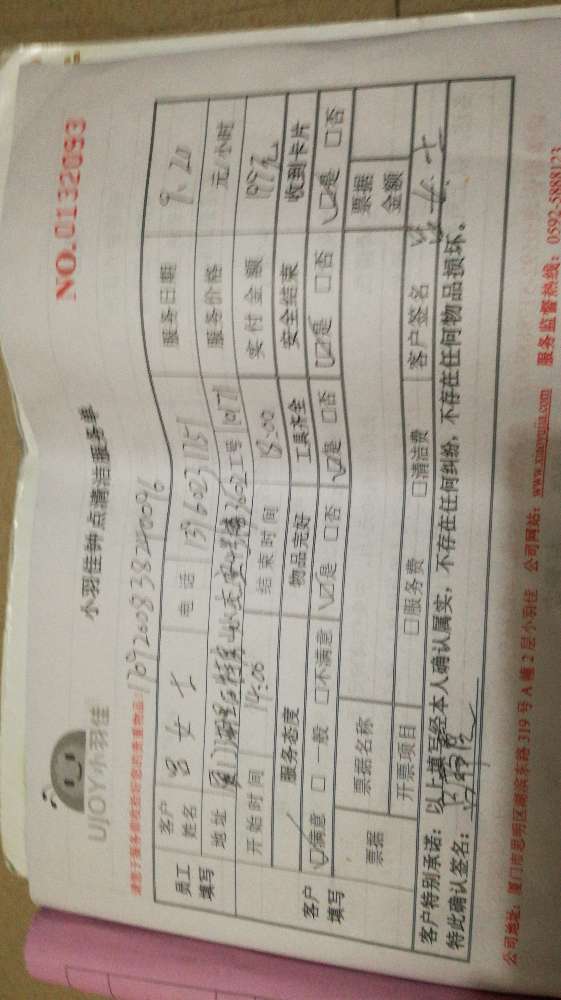 UJOY小羽佳
小羽佳钟点清洁服务单
NO.0132093
请您于服务前收捡好您的贵重物品:
员工填写 客户姓名 吕女士 电话 13960231151 服务日期 9.20
地址 工号 服务价格 元/小时
开始时间 14:00 结束时间 18:00 实付金额 元
客户填写 服务态度 物品完好 工具齐全 安全结束 收到卡片
☑满意 □一般 □不满意 ☑是 □否 ☑是 □否 ☑是 □否 ☑是 □否
票据 票据名称 票据金额
开票项目 □服务费 □清洁费 客户签名
客户特别承诺:以上填写经本人确认属实,不存在任何纠纷,不存在任何物品损坏。
特此确认签名:
公司地址:厦门市思明区湖滨东路319号A幢2层小羽佳 公司网站:www.xiaoyujia.com 服务监督热线:0592-5888123